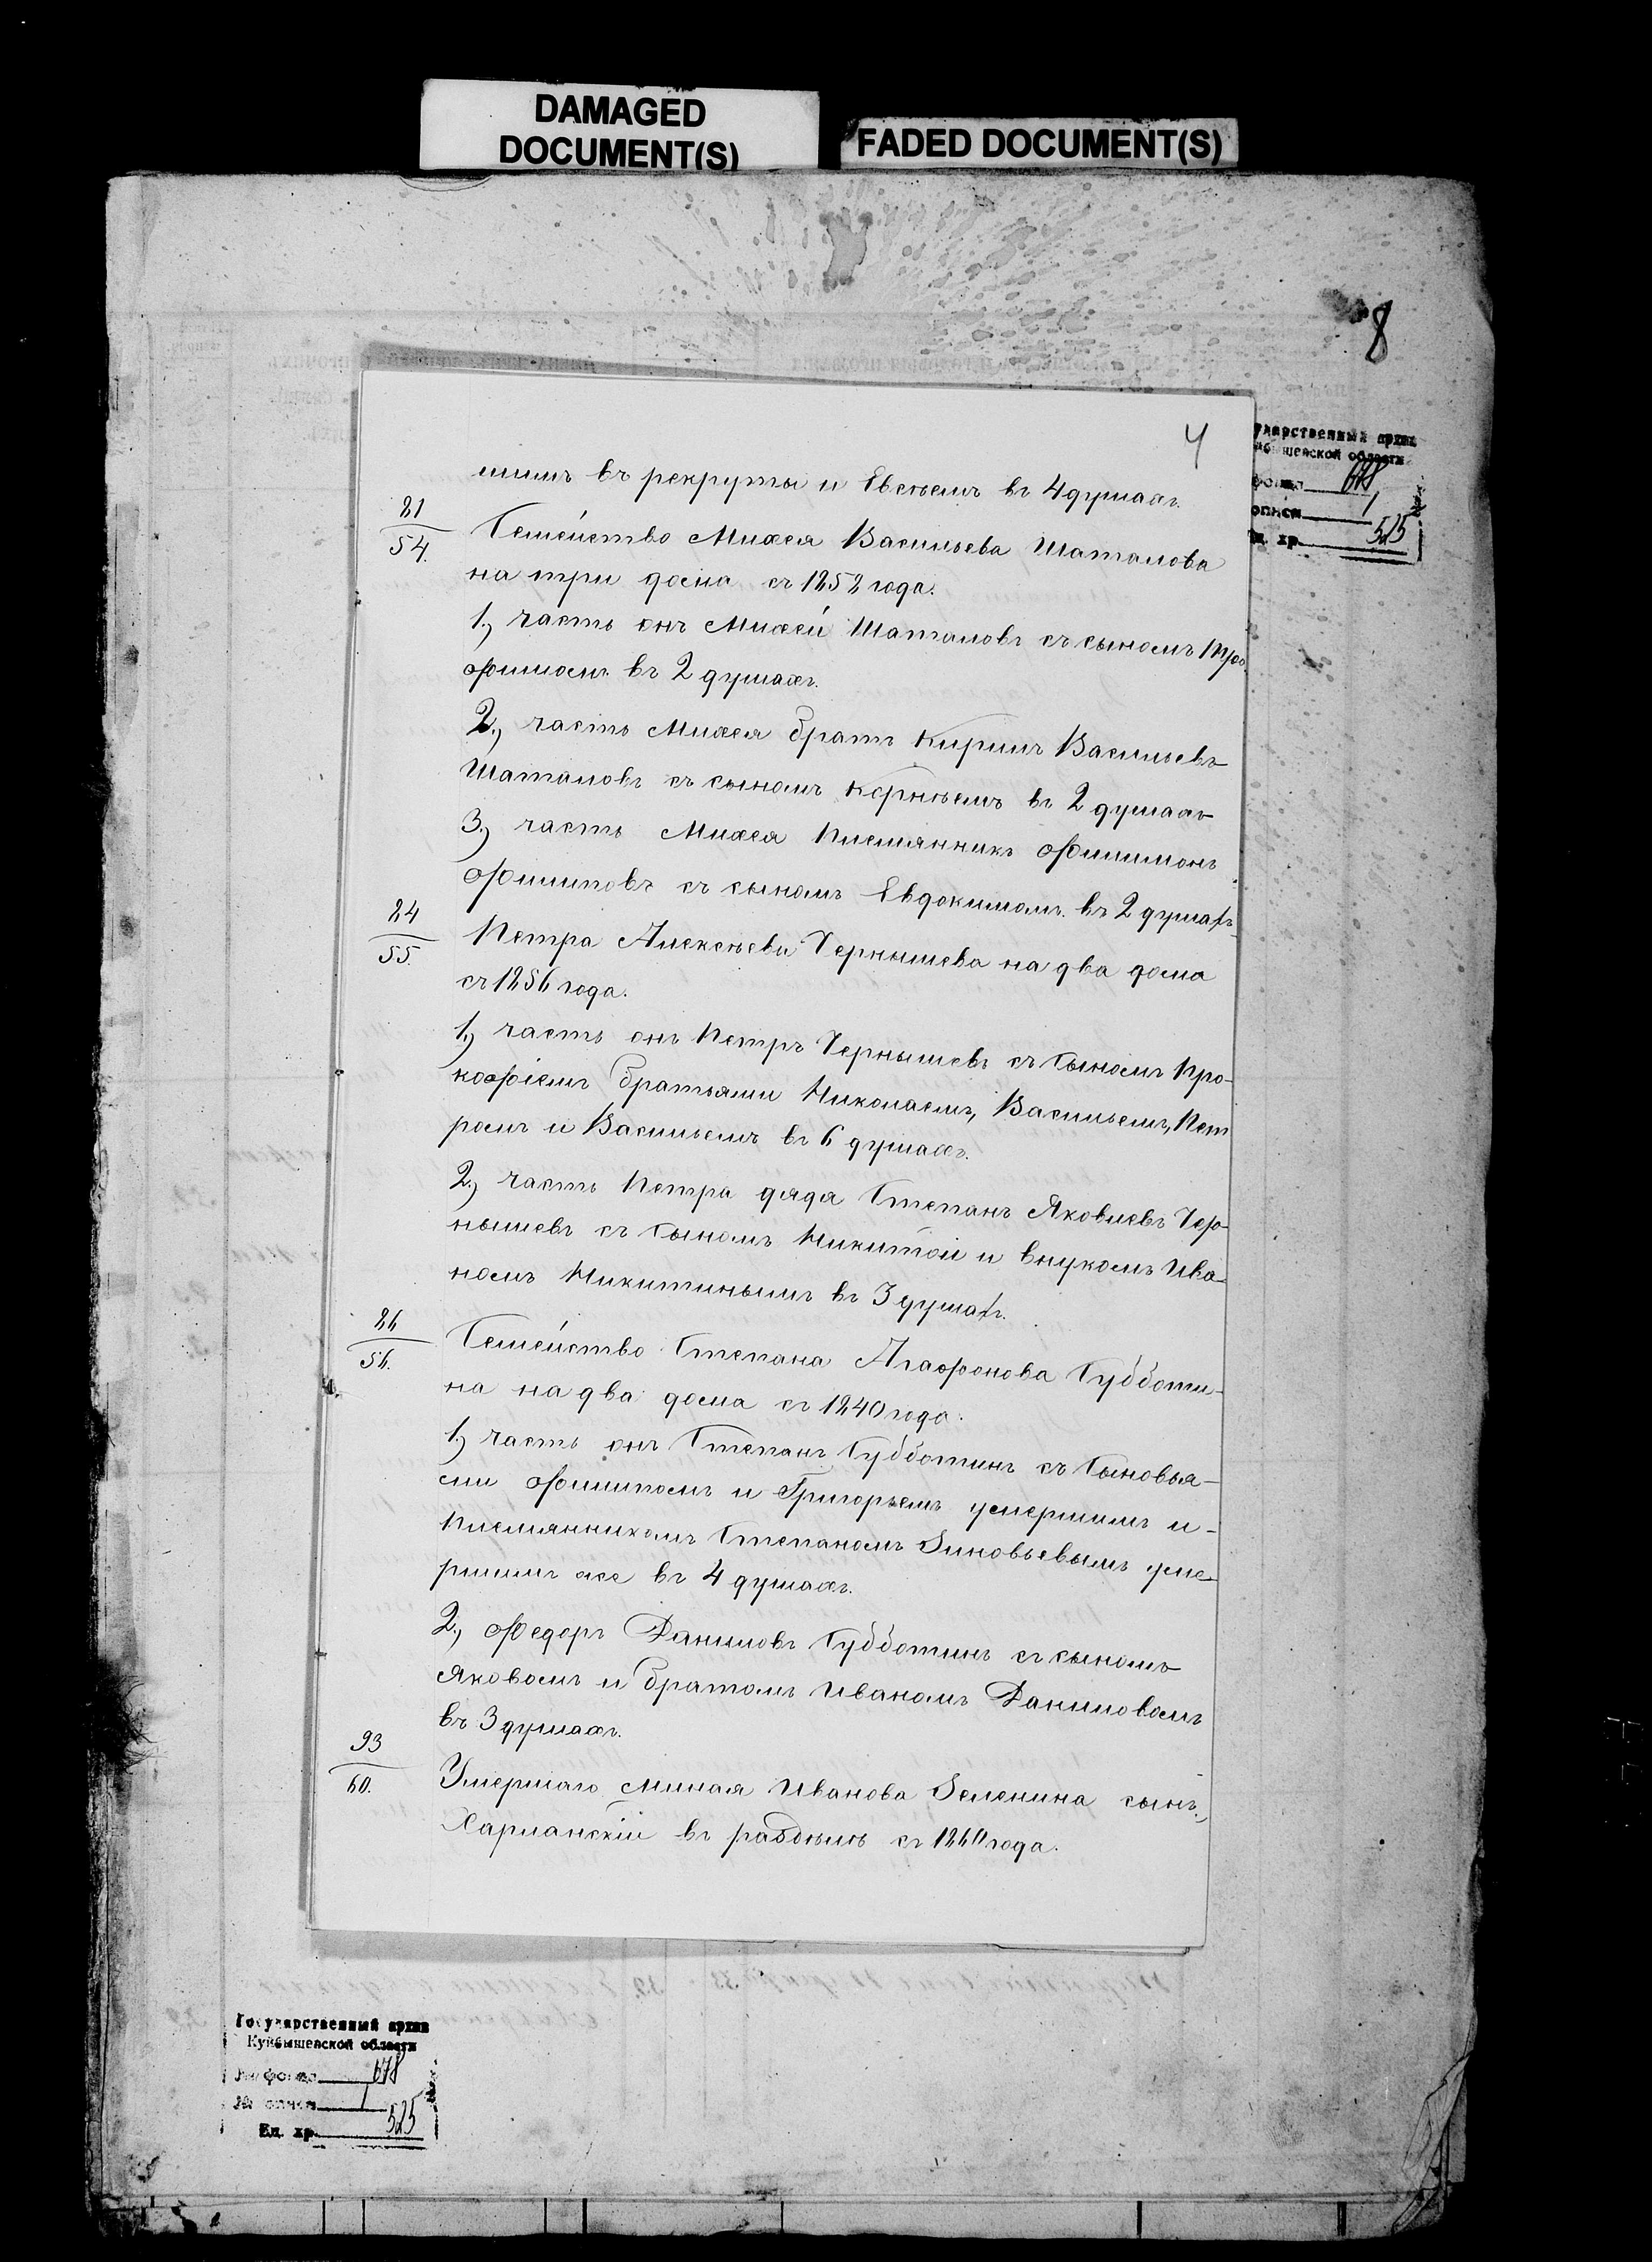 DAMAGED
DOCUMENT(S)
FADED DOCUMENT(S)
8
4
Государственный архив
Куйбышевской области
фонд 678
опись 1
Ед. хр. 525
шимъ въ рекруты и Евсѣемъ въ 4 душахъ.
81
54.
Семейство Михея Васильева Шаталова
на три дома съ 1852 года.
1., часть онъ Михей Шаталовъ съ сыномъ Тро-
фимомъ въ 2 душахъ.
2., часть Михея братъ Кирилъ Васильевъ
Шаталовъ съ сыномъ Корнѣемъ въ 2 душахъ
3., часть Михея племянникъ Филимонъ
Филиповъ съ сыномъ Евдокимомъ въ 2 душахъ
84
55.
Петра Алексѣева Чернышева на два дома
съ 1856 года.
1., часть онъ Петръ Чернышевъ съ сыномъ Про-
кофіемъ братьями Николаемъ, Васильемъ, Пет
ромъ и Васильемъ въ 6 душахъ.
2., часть Петра дядя Степанъ Яковлевъ Чер-
нышевъ съ сыномъ Никитой и внукомъ Ива-
номъ Никитинымъ въ 3 душахъ.
86
56.
Семейство Степана Агафонова Субботи-
на на два дома съ 1840 года.
1., часть онъ Степанъ Субботинъ съ сыновья-
ми Филипомъ и Григорьемъ умершимъ и-
племянникомъ Степаномъ Зиновьевымъ уме-
ршимъ же въ 4 душахъ.
2., Федоръ Даниловъ Субботинъ съ сыномъ
Яковомъ и братомъ Иваномъ Даниловомъ
въ 3 душахъ.
93
60.
Умершаго Миная Иванова Зеленина сынъ,
Харланскій въ раздѣлѣ съ 1860 года.
Государственный архив
Куйбышевской области
№ фонда 678
№ описи 1
Ед. хр. 525